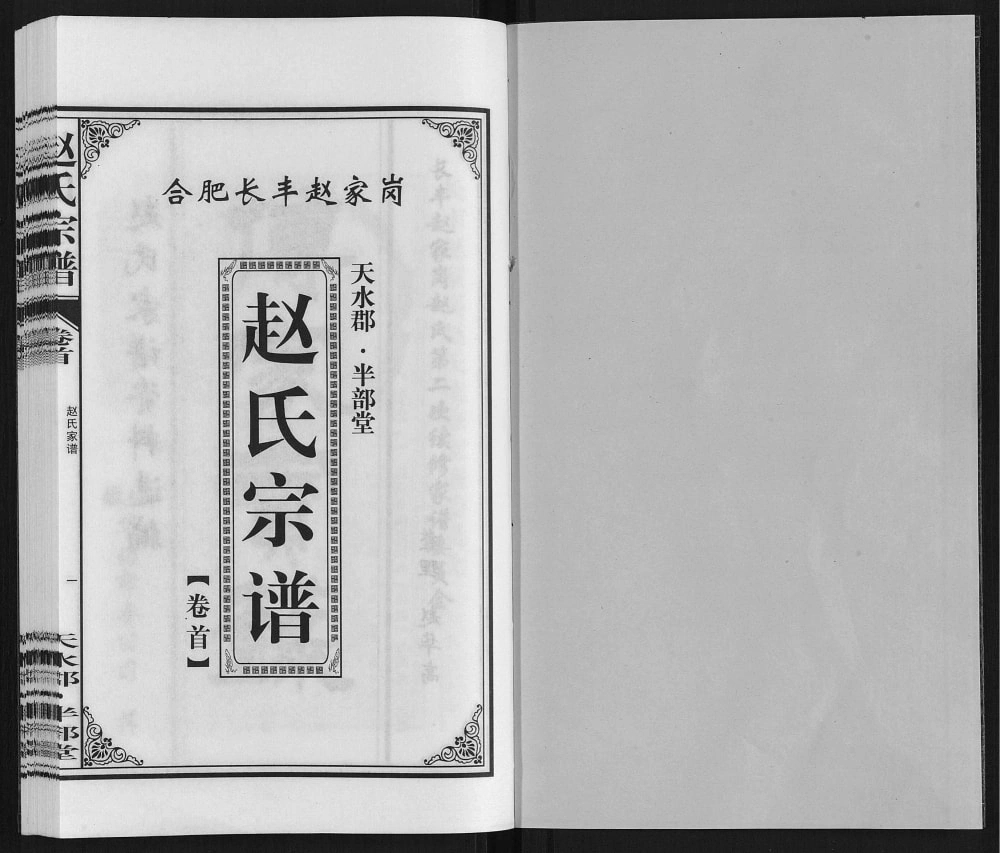 合肥长丰赵家岗
天水郡·半部堂
赵氏宗谱
【卷首】
赵氏宗谱
卷首
赵氏家谱
一
天水郡·半部堂